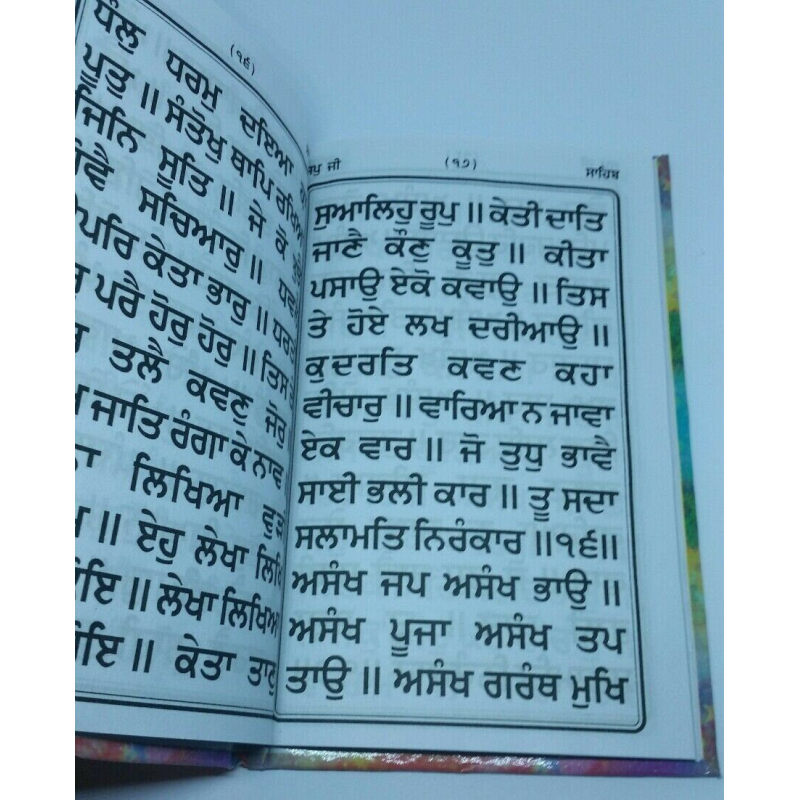 (੧੬)
ਧੌਲੁ ਧਰਮੁ ਦਇਆ
ਪੂਤੁ ॥ ਸੰਤੋਖੁ ਥਾਪਿ
ਜਿਨਿ ਸੂਤਿ ॥ ਜੇ ਕੋ
ਸਚਿਆਰੁ ॥
ਕੇਤਾ ਭਾਰੁ ॥
ਪਰੈ ਹੋਰੁ ਹੋਰੁ ॥ ਤਿਸ
ਤਲੈ ਕਵਣੁ ਜੋਰੁ
ਜਾਤਿ ਰੰਗਾ ਕੇ ਨਾਵ
ਲਿਖਿਆ
॥ ਏਹੁ ਲੇਖਾ
॥ ਲੇਖਾ ਲਿਖਿਆ
॥ ਕੇਤਾ ਤਾਣੁ
ਜਪੁ ਜੀ (੧੭) ਸਾਹਿਬ
ਸੁਆਲਿਹੁ ਰੂਪੁ ॥ ਕੇਤੀ ਦਾਤਿ
ਜਾਣੈ ਕੌਣੁ ਕੂਤੁ ॥ ਕੀਤਾ
ਪਸਾਉ ਏਕੋ ਕਵਾਉ ॥ ਤਿਸ
ਤੇ ਹੋਏ ਲਖ ਦਰੀਆਉ ॥
ਕੁਦਰਤਿ ਕਵਣ ਕਹਾ
ਵੀਚਾਰੁ ॥ ਵਾਰਿਆ ਨ ਜਾਵਾ
ਏਕ ਵਾਰ ॥ ਜੋ ਤੁਧੁ ਭਾਵੈ
ਸਾਈ ਭਲੀ ਕਾਰ ॥ ਤੂ ਸਦਾ
ਸਲਾਮਤਿ ਨਿਰੰਕਾਰ ॥੧੬॥
ਅਸੰਖ ਜਪ ਅਸੰਖ ਭਾਉ ॥
ਅਸੰਖ ਪੂਜਾ ਅਸੰਖ ਤਪ
ਤਾਉ ॥ ਅਸੰਖ ਗਰੰਥ ਮੁਖਿ